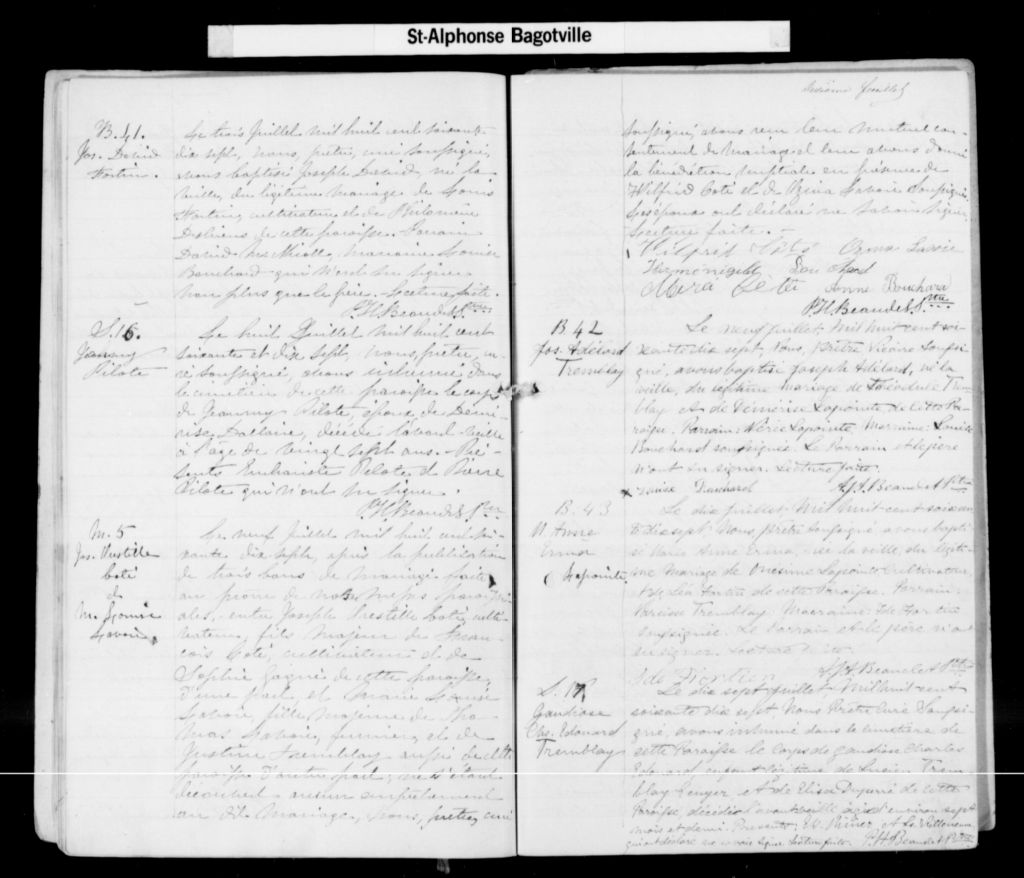 St-Alphonse Bagotville
B. 41.
Jos. David
Fortin.
Le trois Juillet mil huit cent soixante-
dix sept, nous, prêtre, curé soussigné,
avons baptisé Joseph David, né la
veille, du légitime mariage de Louis
Fortin, cultivateur et de Philomène
de cette paroisse. Parrain
David marraine Louise
Bouchard qui n'ont su signer
non plus que le père. Lecture faite.
P.H. Beaudet Ptre
S. 16.
Jeremy
Pilote
Le huit Juillet mil huit cent
soixante et dix sept, nous, prêtre, cu-
ré soussigné, avons inhumé dans
le cimetière de cette paroisse le corps
de Jeremy Pilote, époux de Démé-
rise Dallaire, décédé l'avant-veille
à l'âge de vingt sept ans. Pré-
sents Pilote, et Pierre
Pilote qui n'ont su signer.
P.H. Beaudet Ptre
M. 5
Jos.
Coté
&
M. Louise
Lavoie
Le neuf Juillet mil huit cent soi-
xante dix sept, après la publication
de trois bans de mariage faite
au prône de nos messes parois-
siales, entre Joseph Coté, culti-
vateur, fils majeur de Fran-
çois Coté, cultivateur et de
Sophie Gagné de cette paroisse,
d'une part, et Marie Louise
Lavoie, fille majeure de Tho-
mas Lavoie, fermier, et de
Justine Tremblay, aussi de cette
paroisse d'autre part; ne s'étant
découvert aucun empêchement
au dit mariage, nous, prêtre, curé
feuillet
soussigné, avons reçu leur mutuel con-
sentement de mariage et leur avons donné
la bénédiction nuptiale en présence de
Wilfrid Coté et de Ozina Lavoie soussignés.
Les époux ont déclaré ne savoir signer.
Lecture faite. -
Wilfrid Coté Ozina Lavoie
Anne Bouchard
P.H. Beaudet Ptre
B. 42
Jos. Adélard
Tremblay
Le neuf Juillet, mil huit cent soi-
xante dix sept, Nous, Prêtre Vicaire soussi-
gné, avons baptisé Joseph Adélard, né la
veille, du légitime mariage de Théodule Trem-
blay et de Démérise Lapointe, de cette Pa-
roisse. Parrain: Nérée Lapointe Marraine: Louise
Bouchard soussignée. Le Parrain et le père
n'ont su signer. Lecture faite.
x Louise Bouchard Beaudet Ptre
B. 43
M. Anne
Erma
Lapointe
Le dix juillet, mil huit cent soixan
te dix sept, Nous prêtre soussigné avons bapti-
sé Marie Anne Erma, née la veille, du légiti-
me mariage de Onésime Lapointe cultivateur,
et de Léa Fortin de cette Paroisse. Parrain:
Narcisse Tremblay. Marraine: Ide Fortin
soussignée. Le Parrain et le père n'ont
su signer. Lecture faite
Ide Fortien Beaudet Ptre
S. 17
Gaudiose
Chs. Edouard
Tremblay
Le dix sept juillet, mil huit cent
soixante dix sept, Nous Prêtre Curé soussi-
gné, avons inhumé dans le cimetière de
cette Paroisse le corps de Gaudiose Charles
Edouard enfant légitime de Trem-
blay et de Elisa de cette
Paroisse, décédé l'avant veille âgé d'environ sept
mois et demi. Présents:
qui ont déclaré ne savoir signer lecture faite. P.H. Beaudet Ptre